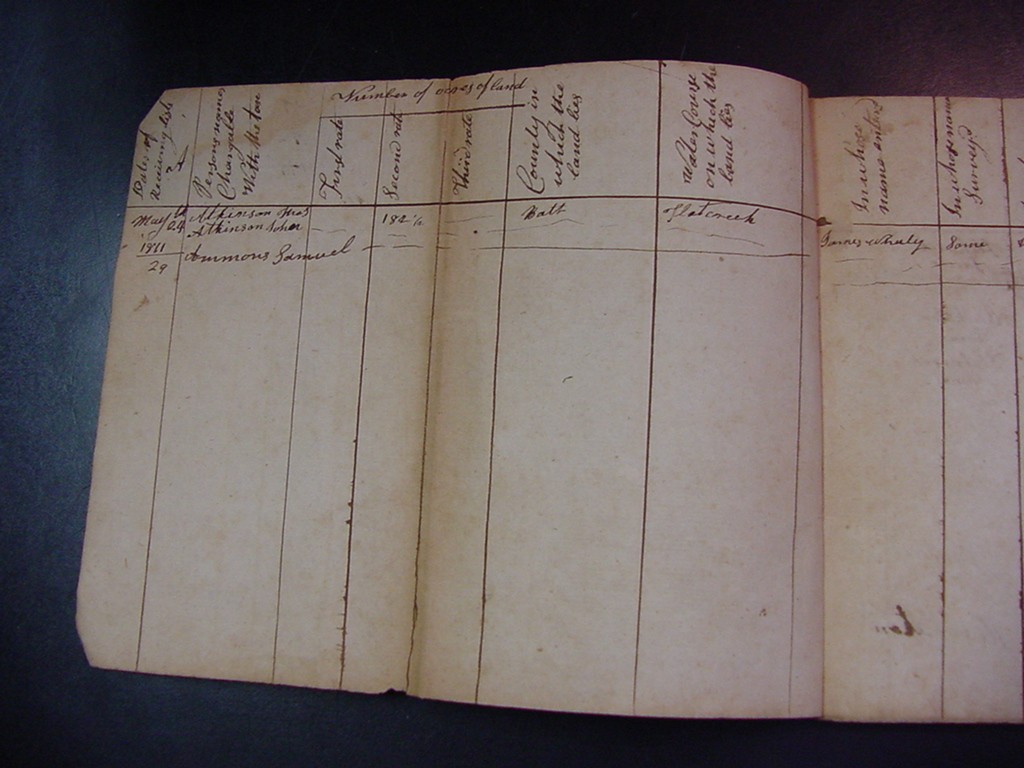 Number of acres of land
Dates of
Receiving lists
Persons names
Chargable
With the tax
First rate
Second rate
Third rate
County in
which the
land lies
Water Course
on which the
land lies
In whose
name entered
In whose name
Surveyd
May 24 Atkinson 182 1/2 Batt Flat creek James Same
Atkinson
1811
29 Ammons Samuel